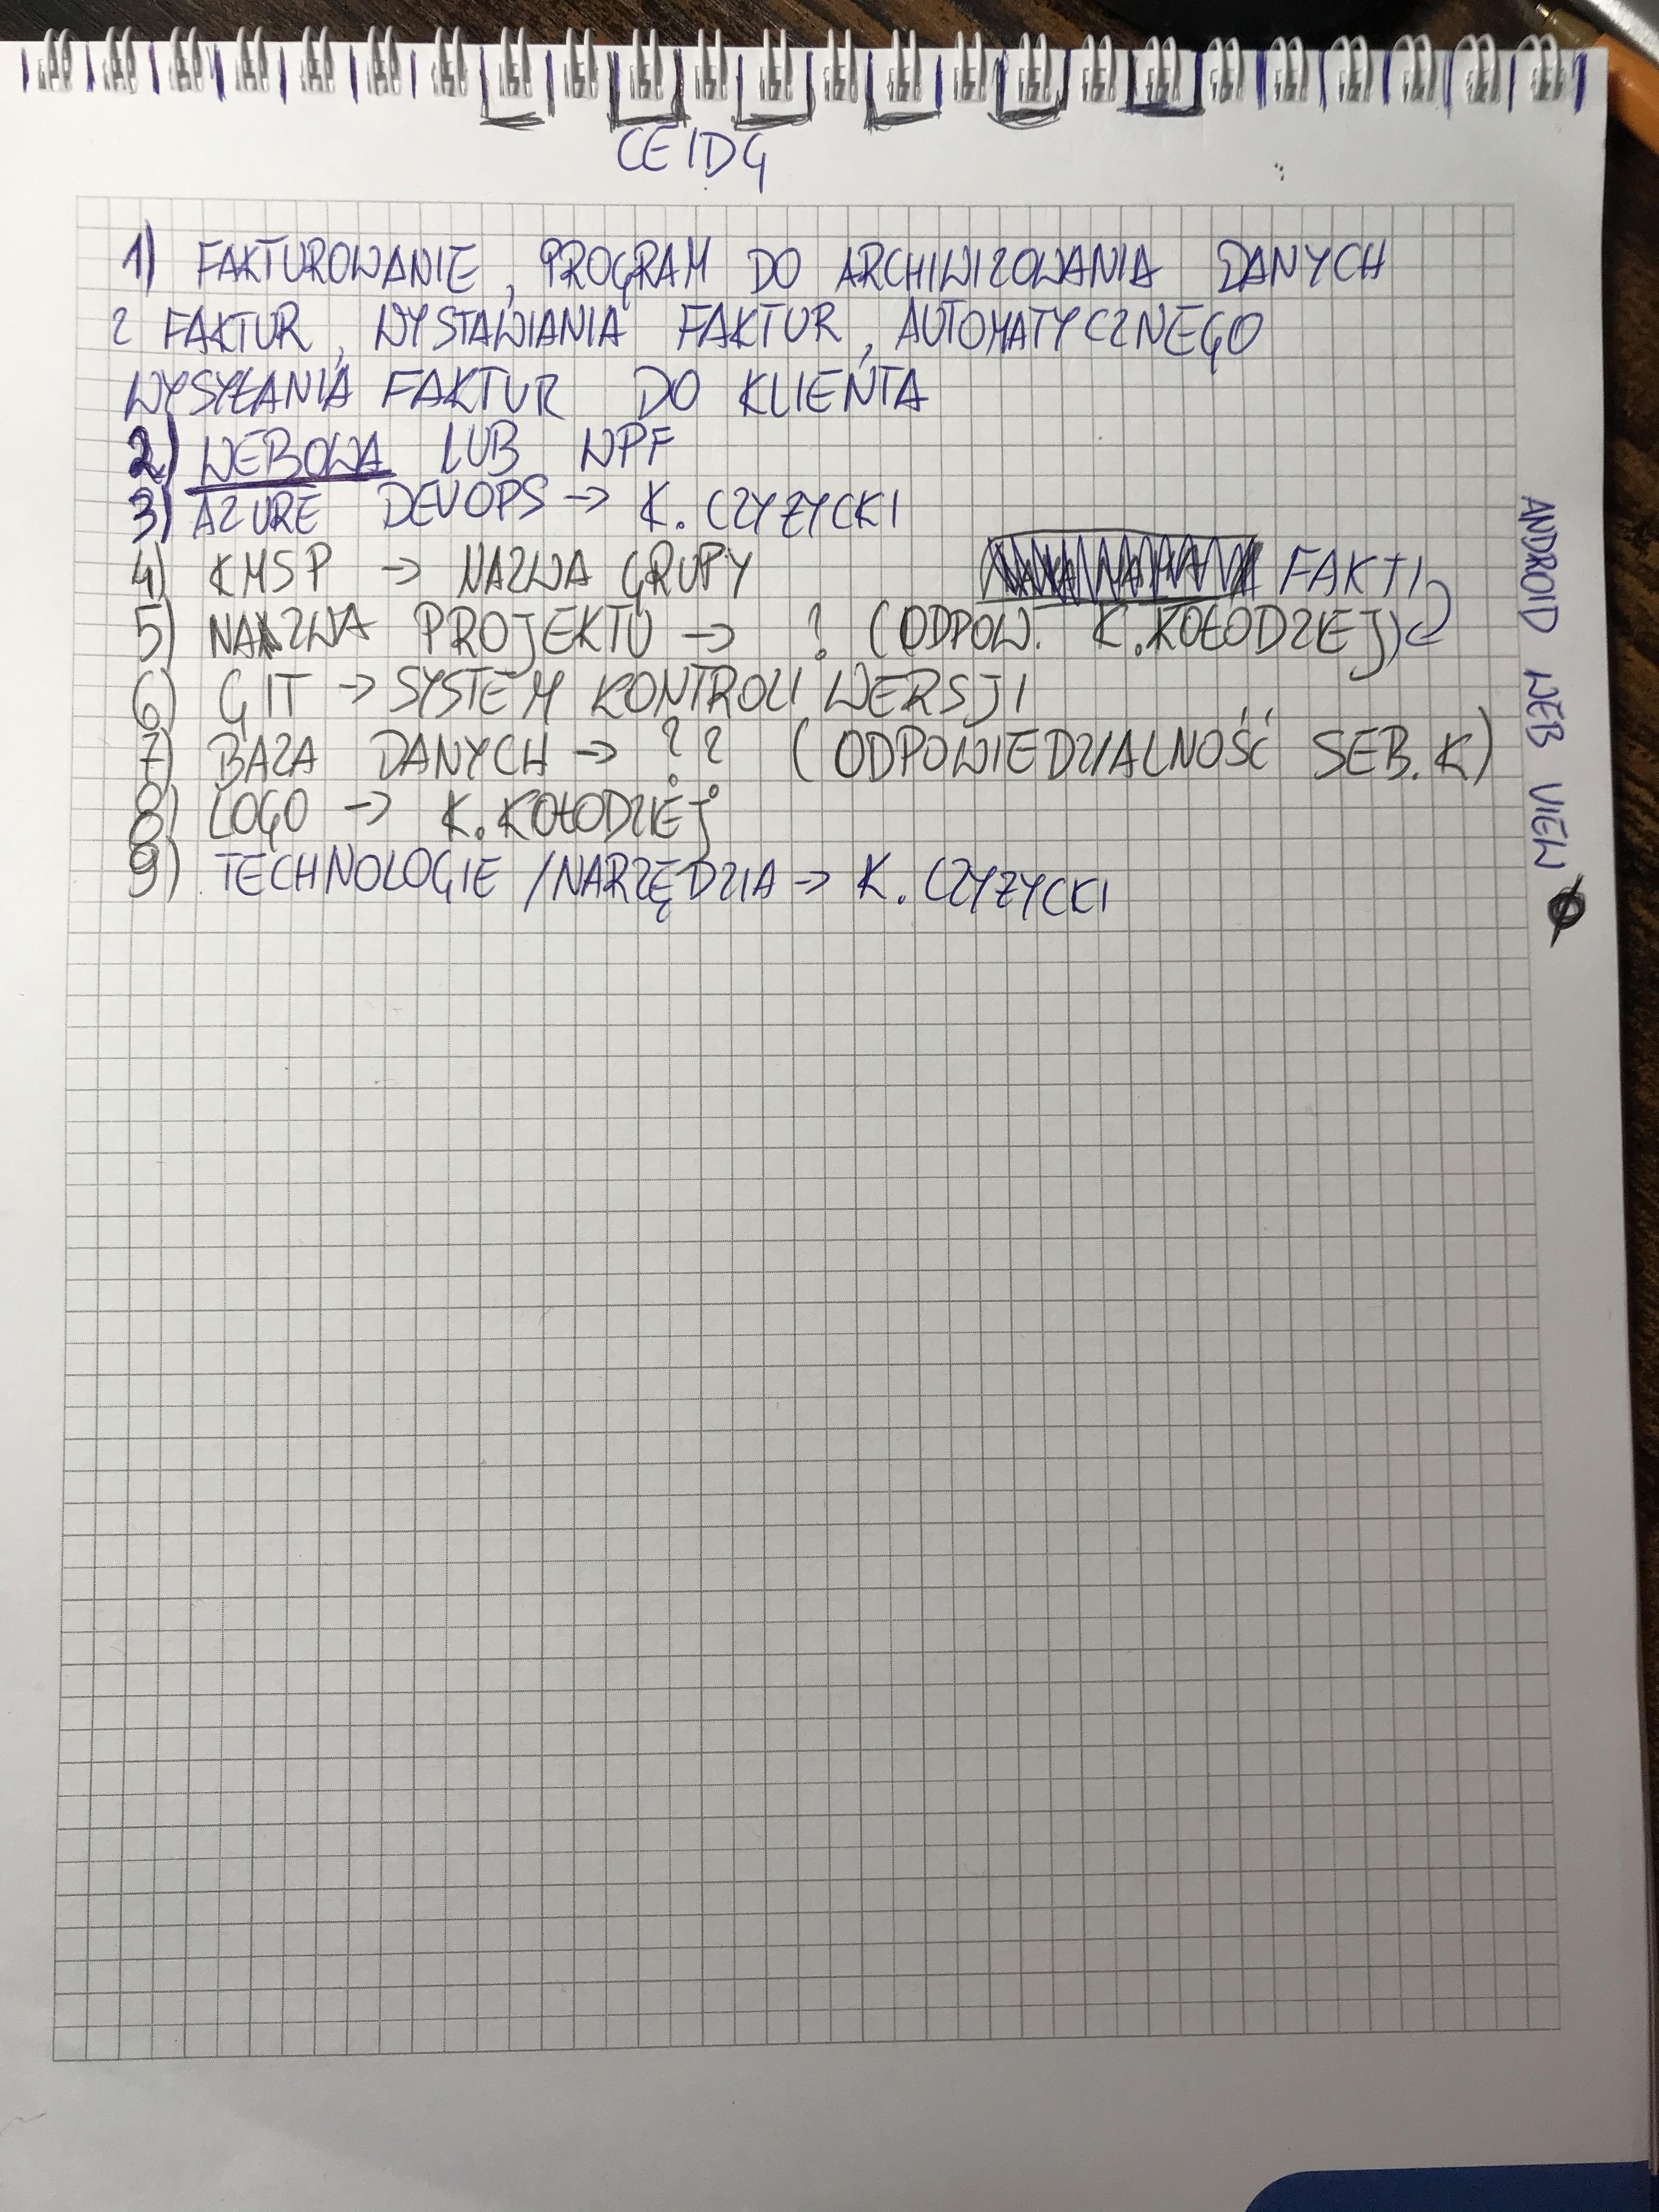 CEIDG
1) FAKTUROWANIE, PROGRAM DO ARCHIWIZOWANIA DANYCH
Z FAKTUR, WYSTAWIANIA FAKTUR, AUTOMATYCZNEGO
WYSYŁANIA FAKTUR DO KLIENTA
2) WEBOWA LUB WPF
3) AZURE DEVOPS → K. CZYŻYCKI
4) KMSP → NAZWA GRUPY FAKTI
5) NAZWA PROJEKTU → ? (ODPOW. K. KOŁODZIEJ)
6) GIT → SYSTEM KONTROLI WERSJI
7) BAZA DANYCH → ?? (ODPOWIEDZIALNOŚĆ SEB. K)
8) LOGO → K. KOŁODZIEJ
9) TECHNOLOGIE / NARZĘDZIA → K. CZYŻYCKI
ANDROID WEB VIEW